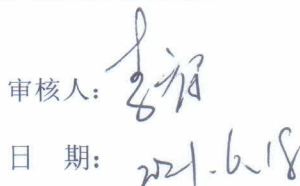 审核人：
日 期：2021.6.18